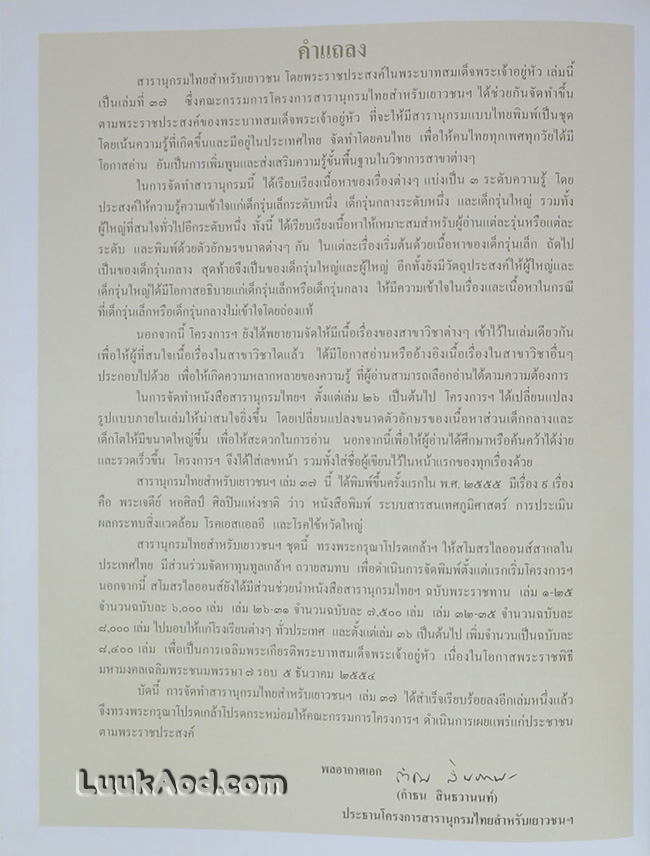 คำแถลง
สารานุกรมไทยสำหรับเยาวชน โดยพระราชประสงค์ในพระบาทสมเด็จพระเจ้าอยู่หัว เล่มนี้
เป็นเล่มที่ ๓๗ ซึ่งคณะกรรมการโครงการสารานุกรมไทยสำหรับเยาวชนฯ ได้ช่วยกันจัดทำขึ้น
ตามพระราชประสงค์ของพระบาทสมเด็จพระเจ้าอยู่หัว ที่จะให้มีสารานุกรมแบบไทยพิมพ์เป็นชุด
โดยเน้นความรู้ที่เกิดขึ้นและมีอยู่ในประเทศไทย จัดทำโดยคนไทย เพื่อให้คนไทยทุกเพศทุกวัยได้มี
โอกาสอ่าน อันเป็นการเพิ่มพูนและส่งเสริมความรู้ขั้นพื้นฐานในวิชาการสาขาต่างๆ
ในการจัดทำสารานุกรมนี้ ได้เรียบเรียงเนื้อหาของเรื่องต่างๆ แบ่งเป็น ๓ ระดับความรู้ โดย
ประสงค์ให้ความรู้ความเข้าใจแก่เด็กรุ่นเล็กระดับหนึ่ง เด็กรุ่นกลางระดับหนึ่ง และเด็กรุ่นใหญ่ รวมทั้ง
ผู้ใหญ่ที่สนใจทั่วไปอีกระดับหนึ่ง ทั้งนี้ ได้เรียบเรียงเนื้อหาให้เหมาะสมสำหรับผู้อ่านแต่ละรุ่นหรือแต่ละ
ระดับ และพิมพ์ด้วยตัวอักษรขนาดต่างๆ กัน ในแต่ละเรื่องเริ่มต้นด้วยเนื้อหาของเด็กรุ่นเล็ก ถัดไป
เป็นของเด็กรุ่นกลาง สุดท้ายจึงเป็นของเด็กรุ่นใหญ่และผู้ใหญ่ อีกทั้งยังมีวัตถุประสงค์ให้ผู้ใหญ่และ
เด็กรุ่นใหญ่ได้มีโอกาสอธิบายแก่เด็กรุ่นเล็กหรือเด็กรุ่นกลาง ให้มีความเข้าใจในเรื่องและเนื้อหาในกรณี
ที่เด็กรุ่นเล็กหรือเด็กรุ่นกลางไม่เข้าใจโดยถ่องแท้
นอกจากนี้ โครงการฯ ยังได้พยายามจัดให้มีเนื้อเรื่องของสาขาวิชาต่างๆ เข้าไว้ในเล่มเดียวกัน
เพื่อให้ผู้ที่สนใจเนื้อเรื่องในสาขาวิชาใดแล้ว ได้มีโอกาสอ่านหรืออ้างอิงเนื้อเรื่องในสาขาวิชาอื่นๆ
ประกอบไปด้วย เพื่อให้เกิดความหลากหลายของความรู้ ที่ผู้อ่านสามารถเลือกอ่านได้ตามความต้องการ
ในการจัดทำหนังสือสารานุกรมไทยฯ ตั้งแต่เล่ม ๒๖ เป็นต้นไป โครงการฯ ได้เปลี่ยนแปลง
รูปแบบภายในเล่มให้น่าสนใจยิ่งขึ้น โดยเปลี่ยนแปลงขนาดตัวอักษรของเนื้อหาส่วนเด็กกลางและ
เด็กโตให้มีขนาดใหญ่ขึ้น เพื่อให้สะดวกในการอ่าน นอกจากนี้เพื่อให้ผู้อ่านได้ศึกษาหรือค้นคว้าได้ง่าย
และรวดเร็วขึ้น โครงการฯ จึงได้ใส่เลขหน้า รวมทั้งใส่ชื่อผู้เขียนไว้ในหน้าแรกของทุกเรื่องด้วย
สารานุกรมไทยสำหรับเยาวชนฯ เล่ม ๓๗ นี้ ได้พิมพ์ขึ้นครั้งแรกใน พ.ศ. ๒๕๕๕ มีเรื่อง ๙ เรื่อง
คือ พระเจดีย์ หอศิลป์ ศิลปินแห่งชาติ ว่าว หนังสือพิมพ์ ระบบสารสนเทศภูมิศาสตร์ การประเมิน
ผลกระทบสิ่งแวดล้อม โรคเอสแอลอี และโรคไข้หวัดใหญ่
สารานุกรมไทยสำหรับเยาวชนฯ ชุดนี้ ทรงพระกรุณาโปรดเกล้าฯ ให้สโมสรไลออนส์สากลใน
ประเทศไทย มีส่วนร่วมจัดหาทุนทูลเกล้าฯ ถวายสมทบ เพื่อดำเนินการจัดพิมพ์ตั้งแต่แรกเริ่มโครงการฯ
นอกจากนี้ สโมสรไลออนส์ยังได้มีส่วนช่วยนำหนังสือสารานุกรมไทยฯ ฉบับพระราชทาน เล่ม ๑-๒๕
จำนวนฉบับละ ๖,๐๐๐ เล่ม เล่ม ๒๖-๓๑ จำนวนฉบับละ ๗,๕๐๐ เล่ม เล่ม ๓๒-๓๕ จำนวนฉบับละ
๘,๐๐๐ เล่ม ไปมอบให้แก่โรงเรียนต่างๆ ทั่วประเทศ และตั้งแต่เล่ม ๓๖ เป็นต้นไป เพิ่มจำนวนเป็นฉบับละ
๘,๔๐๐ เล่ม เพื่อเป็นการเฉลิมพระเกียรติพระบาทสมเด็จพระเจ้าอยู่หัว เนื่องในโอกาสพระราชพิธี
มหามงคลเฉลิมพระชนมพรรษา ๗ รอบ ๕ ธันวาคม ๒๕๕๔
บัดนี้ การจัดทำสารานุกรมไทยสำหรับเยาวชนฯ เล่ม ๓๗ ได้สำเร็จเรียบร้อยลงอีกเล่มหนึ่งแล้ว
จึงทรงพระกรุณาโปรดเกล้าโปรดกระหม่อมให้คณะกรรมการโครงการฯ ดำเนินการเผยแพร่แก่ประชาชน
ตามพระราชประสงค์
พลอากาศเอก
(กำธน สินธวานนท์)
ประธานโครงการสารานุกรมไทยสำหรับเยาวชนฯ
LuukAod.com